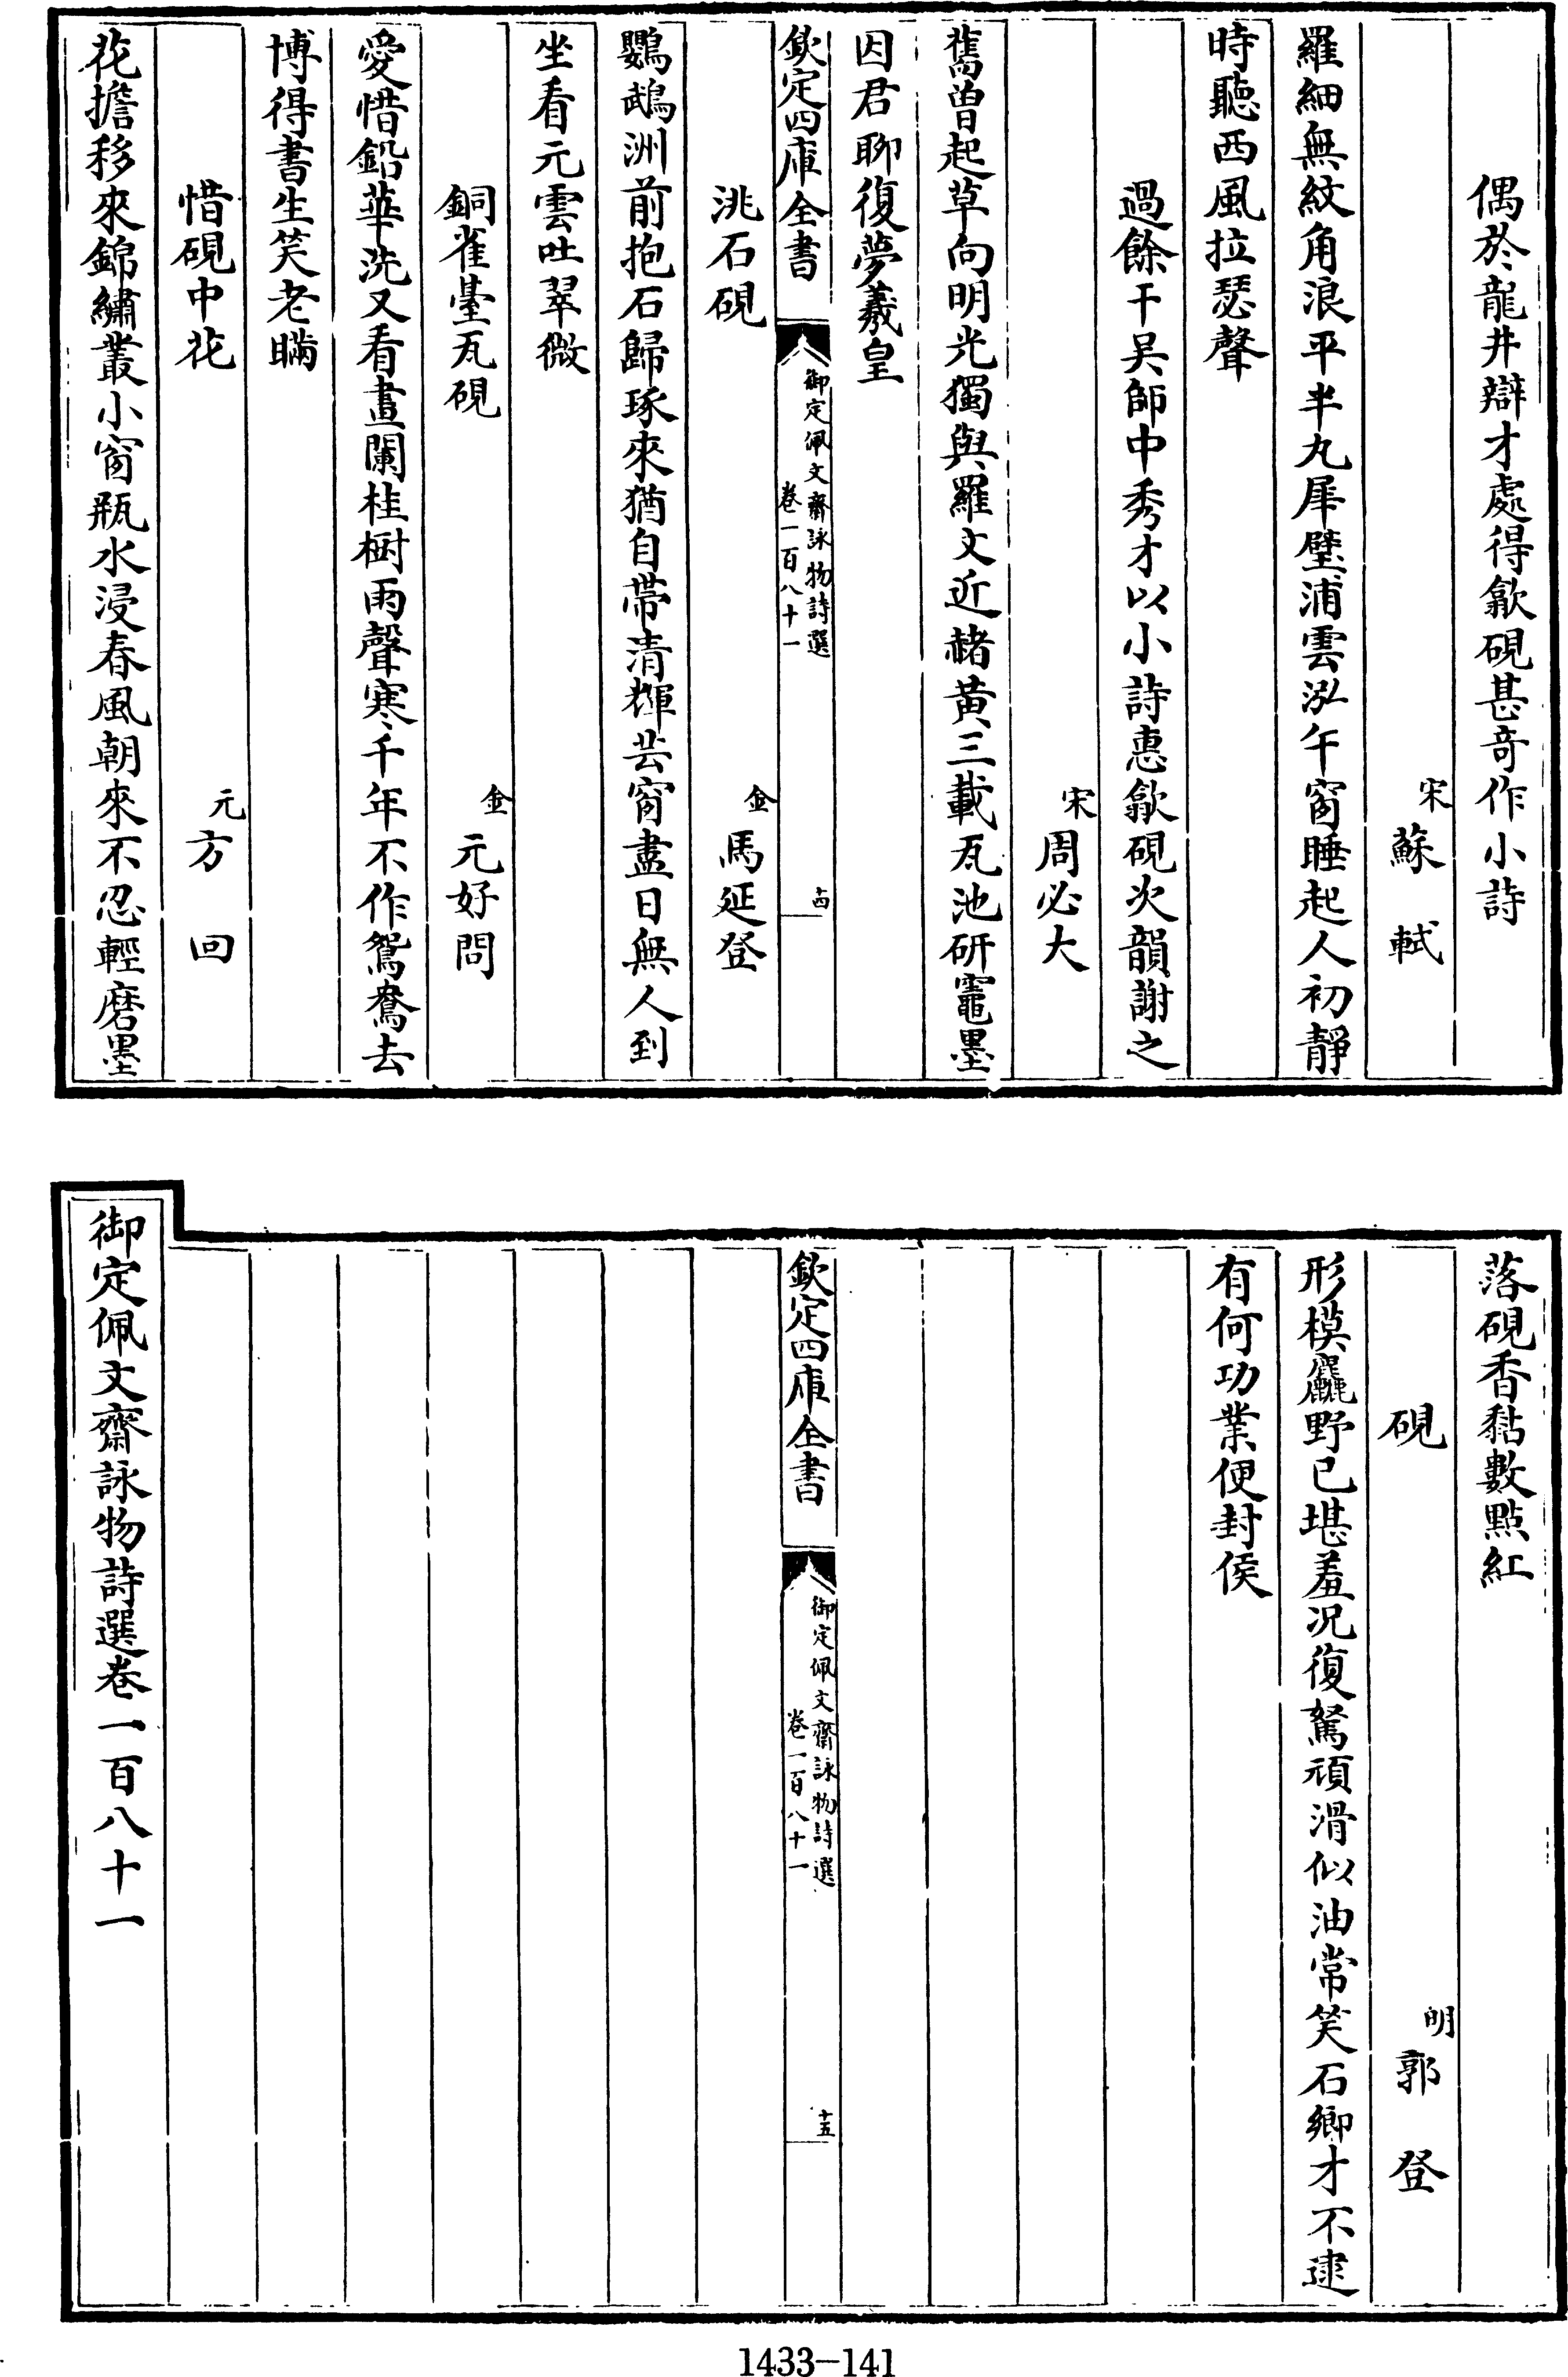 偶於龍井辯才處得歙硯甚奇作小詩
宋蘇軾
羅細無紋角浪平半丸犀璧浦雲泓午窗睡起人初靜
時聽西風拉瑟聲
過餘干吴師中秀才以小詩惠歙硯次韻謝之
宋周必大
舊曾起草向明光獨與羅文近赭黃三載瓦池研竈墨
因君聊復夢羲皇
欽定四庫全書
御定佩文齋詠物詩選
卷一百八十一
十四
洮石硯
金馬延登
鸚鵡洲前抱石歸琢來猶自帶清輝芸窗盡日無人到
坐看元雲吐翠微
銅雀臺瓦硯
金元好問
愛惜鉛華洗又看畫闌桂樹雨聲寒千年不作鴛鴦去
博得書生笑老瞞
惜硯中花
元方回
花擔移來錦繡叢小窗瓶水浸春風朝來不忍輕磨墨
落硯香黏數點紅
硯
明郭登
形模麤野已堪羞況復駑頑滑似油常笑石卿才不逮
有何功業便封侯
欽定四庫全書
御定佩文齋詠物詩選
卷一百八十一
十五
御定佩文齋詠物詩選卷一百八十一
1433-141